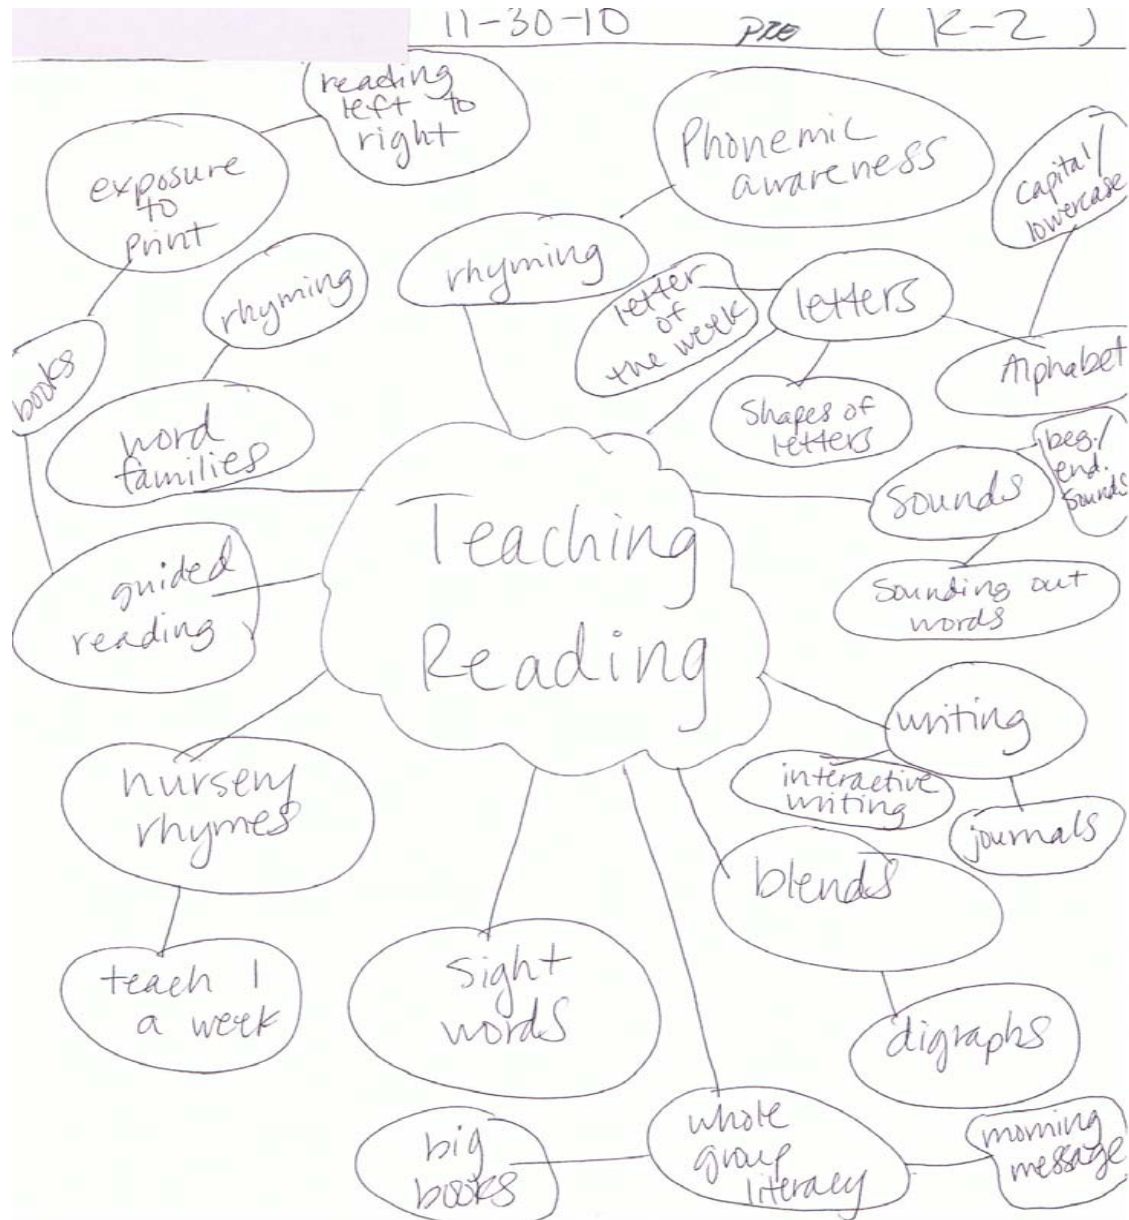 11-30-10 PRE (K-2)
reading
left to
right
exposure
to
print
Phonemic
awareness
capital/
lowercase
rhyming
rhyming
letter
of
the week
letters
Alphabet
books
word
families
Shapes of
letters
sounds
beg./
end.
sounds
Teaching
Reading
guided
reading
sounding out
words
writing
interactive
writing
journals
nursery
rhymes
blends
teach 1
a week
sight
words
digraphs
whole
group
literacy
big
books
morning
message